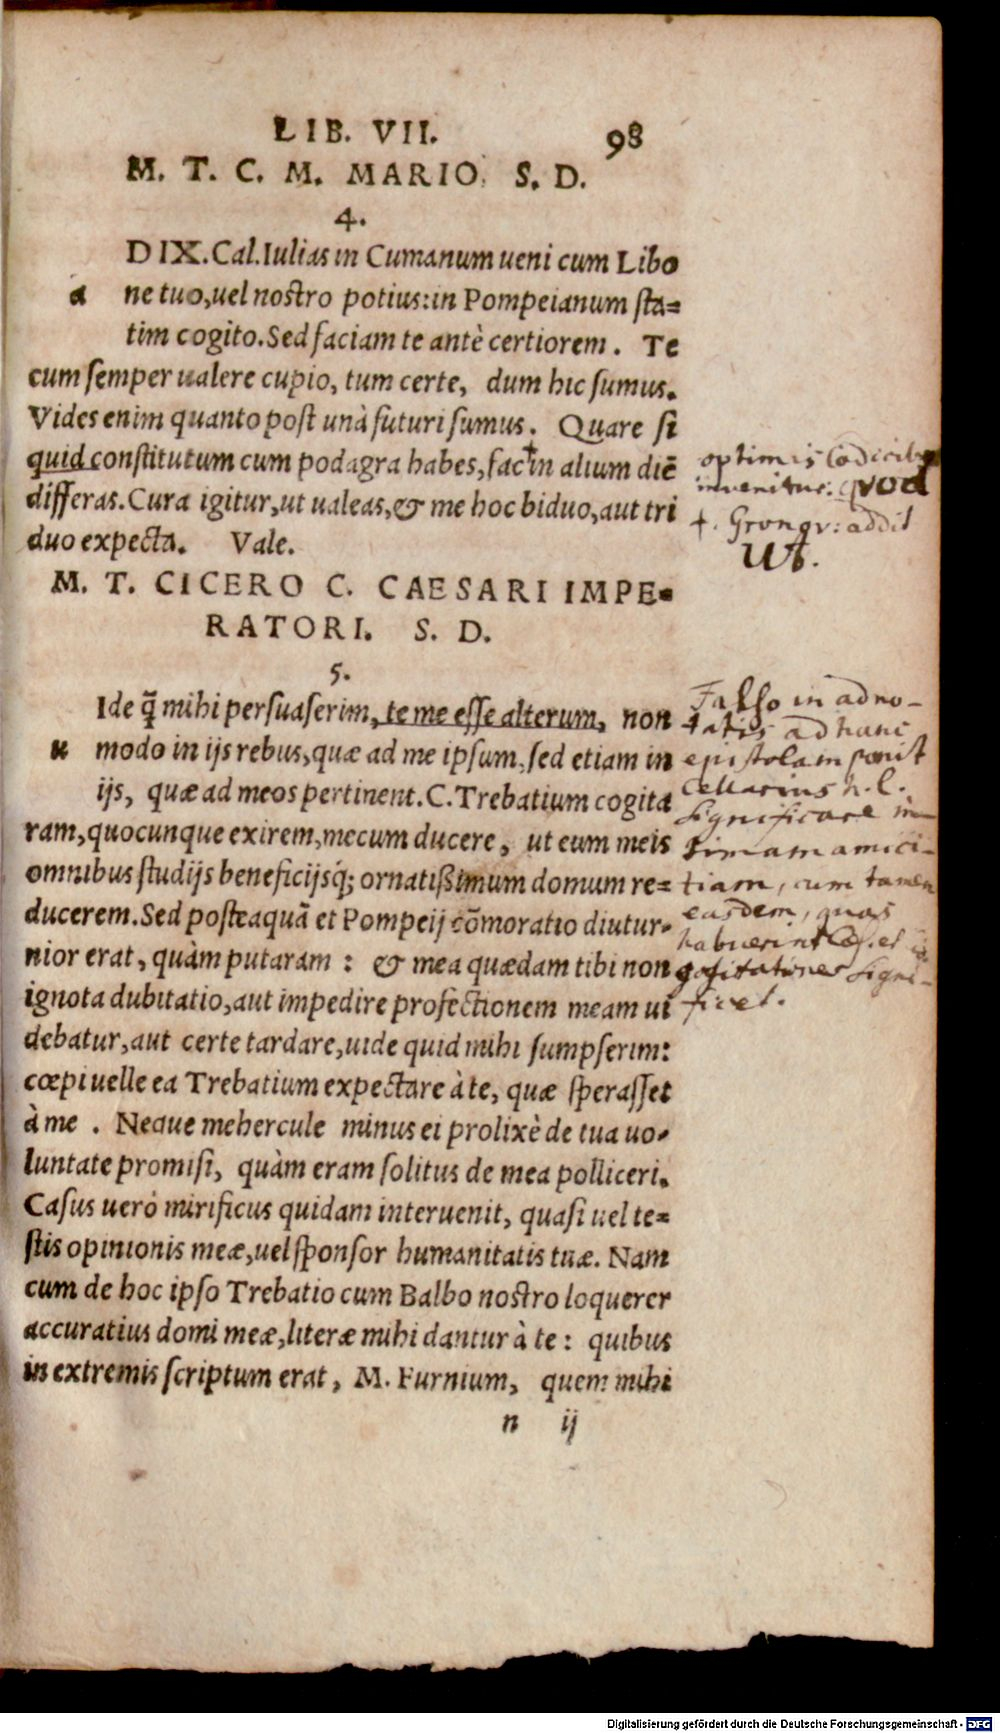 LIB. VII. 98
M. T. C. M. MARIO. S. D.
4.
D IX. Cal. Iulias in Cumanum ueni cum Libo
a ne tuo, uel nostro potius: in Pompeianum sta=
tim cogito. Sed faciam te antè certiorem. Te
cum semper ualere cupio, tum certe, dum hic sumus.
Vides enim quanto post unà futuri sumus. Quare si
quid constitutum cum podagra habes, fac † in alium diē
differas. Cura igitur, ut ualeas, & me hoc biduo, aut tri
duo expecta. Vale.
optimis Codicibus
invenitur: quod
†. Gronov: addit
Ut.
M. T. CICERO C. CAESARI IMPE=
RATORI. S. D.
5.
Ide q̃ mihi persuaserim, te me esse alterum, non
u modo in ijs rebus, quæ ad me ipsum, sed etiam in
ijs, quæ ad meos pertinent. C. Trebatium cogita
ram, quocunque exirem, mecum ducere, ut eum meis
omnibus studijs beneficijsq́; ornatißimum domum re=
ducerem. Sed posteaquā et Pompeij cōmoratio diutur=
nior erat, quàm putaram: & mea quædam tibi non
ignota dubitatio, aut impedire profectionem meam ui
debatur, aut certe tardare, uide quid mihi sumpserim:
cœpi uelle ea Trebatium expectare à te, quæ sperasset
à me. Neque mehercule minus ei prolixè de tua uo=
luntate promisi, quàm eram solitus de mea polliceri.
Casus uerò mirificus quidam interuenit, quasi uel te=
stis opinionis meæ, uel sponsor humanitatis tuæ. Nam
cum de hoc ipso Trebatio cum Balbo nostro loquerer
accuratius domi meæ, literæ mihi dantur à te: quibus
in extremis scriptum erat, M. Furnium, quem mihi
n ij
Falso in adno-
tatis ad hanc
epistolam ponit
Cellarius h. l.
significare in-
timam amici-
tiam, cum tamen
easdem, quas
habuerint Cæs. et
cogitationes signi-
ficet.
Digitalisierung gefördert durch die Deutsche Forschungsgemeinschaft - DFG